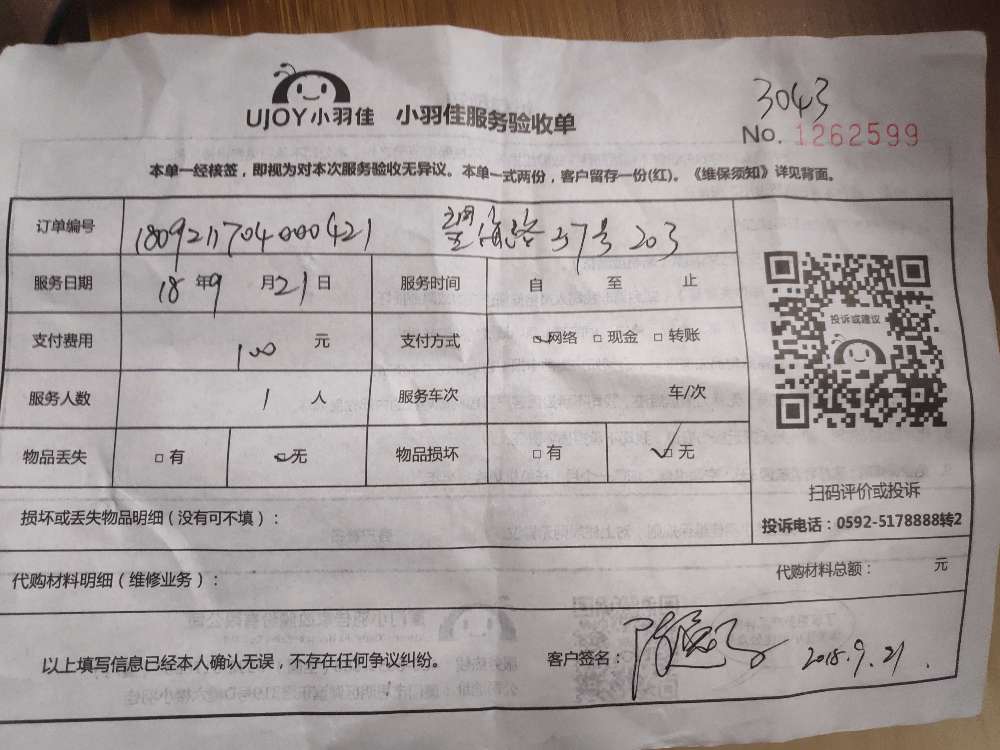 3043
UJOY小羽佳 小羽佳服务验收单
No. 1262599
本单一经核签，即视为对本次服务验收无异议。本单一式两份，客户留存一份(红)。《维保须知》详见背面。
订单编号 180921704000421 望海路57号 203
服务日期 18年9月21日 服务时间 自 至 止
投诉或建议
支付费用 100 元 支付方式 □网络 □现金 □转账
服务人数 1 人 服务车次 车/次
物品丢失 □有 □无 物品损坏 □有 □无
扫码评价或投诉
损坏或丢失物品明细（没有可不填）：
投诉电话：0592-5178888转2
代购材料明细（维修业务）： 代购材料总额： 元
以上填写信息已经本人确认无误，不存在任何争议纠纷。 客户签名： 2018.9.21.